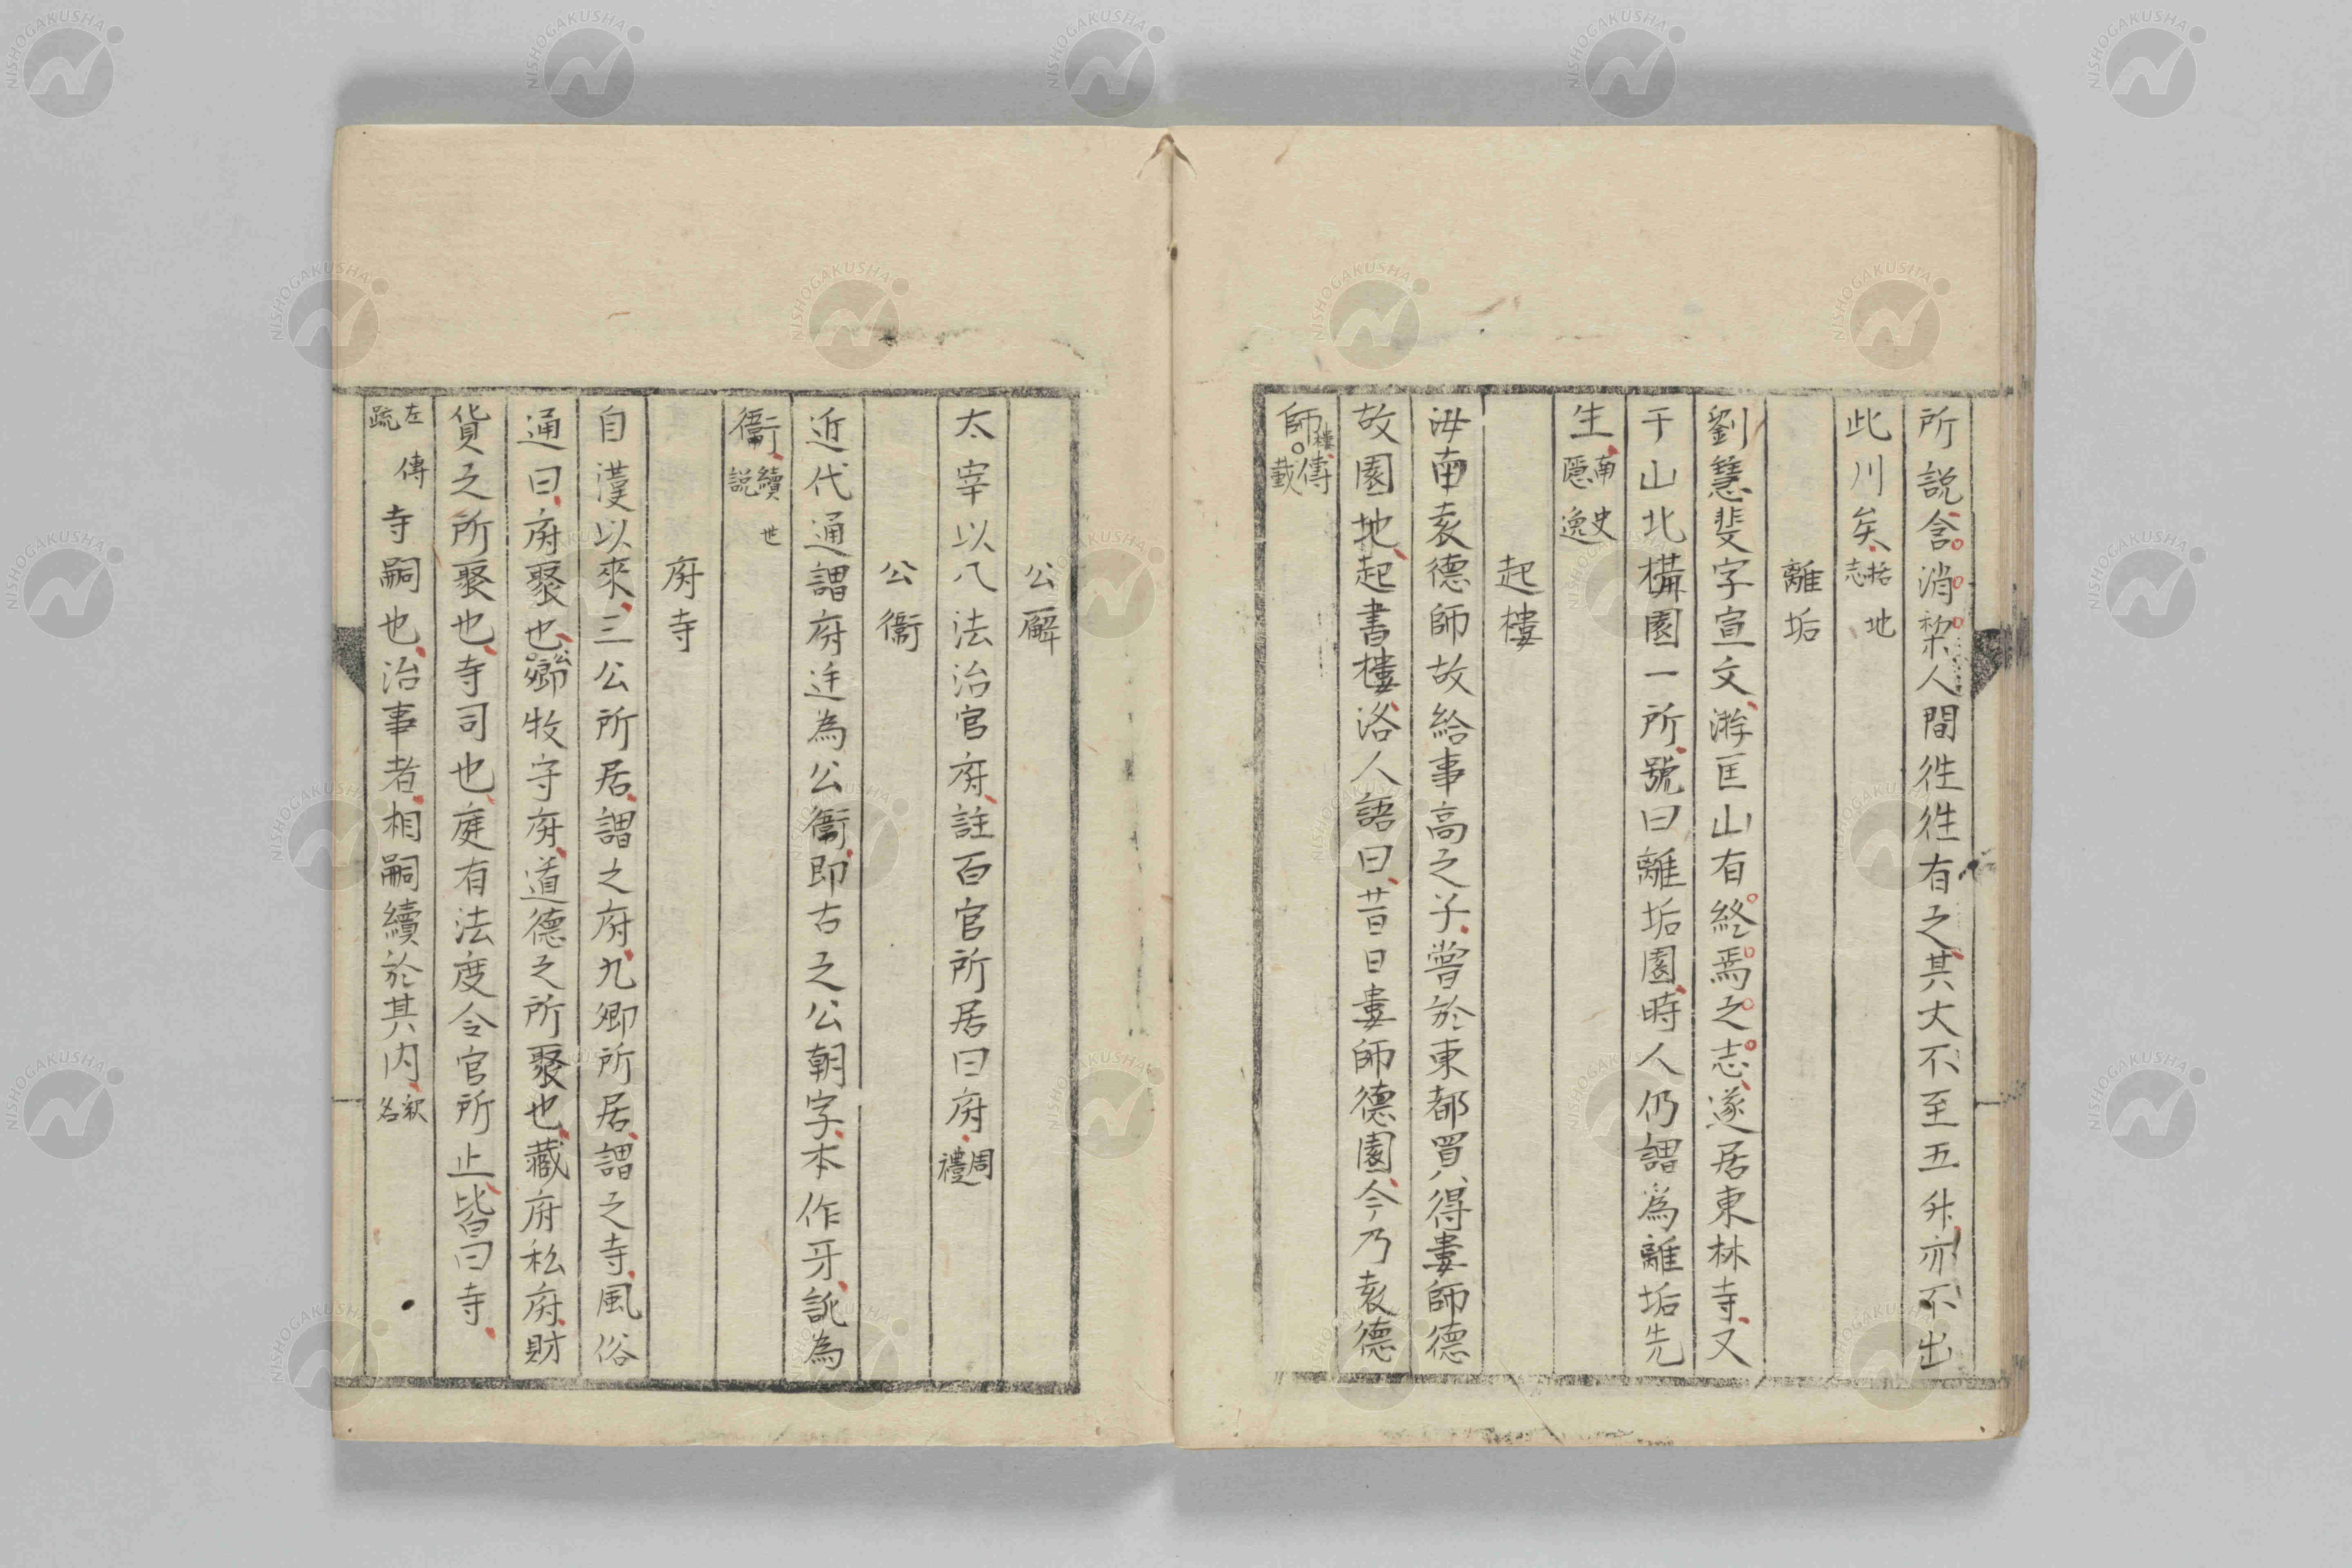 所說含消梨人間徃徃有之其大不至五升亦不出
此川矣括地志
離垢
劉慧斐字宣文游匡山有終焉之志遂居東林寺又
于山北構園一所號曰離垢園時人仍謂為離垢先
生南史隱逸
起樓
汝南袁德師故給事高之子嘗於東都買得婁師德
故園地起書樓洛人語曰昔日婁師德園今乃袁德
師樓傳載
公廨
太宰以八法治官府註百官所居曰府周禮
公衙
近代通謂府廷為公衙即古之公朝字本作牙訛為
衙續世說
府寺
自漢以來三公所居謂之府九卿所居謂之寺風俗
通曰府聚也公卿牧守府道德之所聚也藏府私府財
貨之所聚也寺司也庭有法度令官所止皆曰寺
左傳疏寺嗣也治事者相嗣續於其內釈名
NISHOGAKUSHA